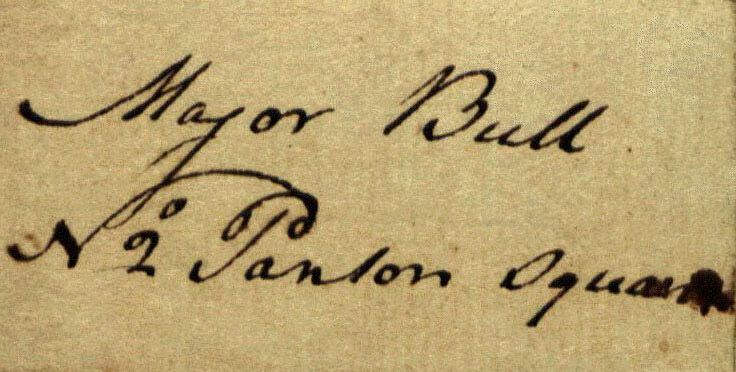 Major Bull
No 2 Panton Square